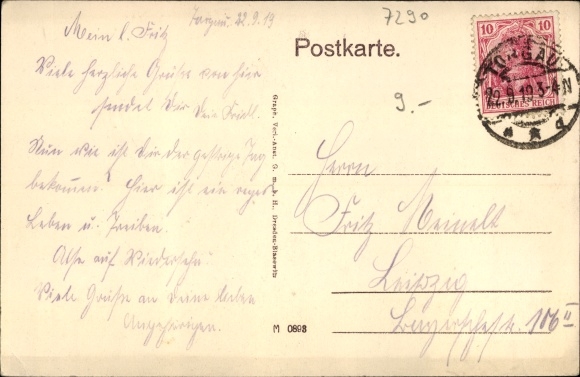 Torgau. 22.9.19
7290
Mein l. Fritz
Viele herzliche Grüße von hier
sendet Dir Dein Friedl.
Nun wie ist Dir der gestrige Tag
bekommen? Hier ist ein reges
Leben u. Treiben.
Also auf Wiedersehn!
Viele Grüße an Deine lieben
Angehörigen.
Postkarte.
9.-
10 10
DEUTSCHES REICH
TORGAU
22.9.19.3-4N
* d
Graph. Verl.-Anst. G. m. b. H., Dresden-Blasewitz
Herrn
Fritz Meinelt
Leipzig
Bayerschestr. 106 II
M 0898